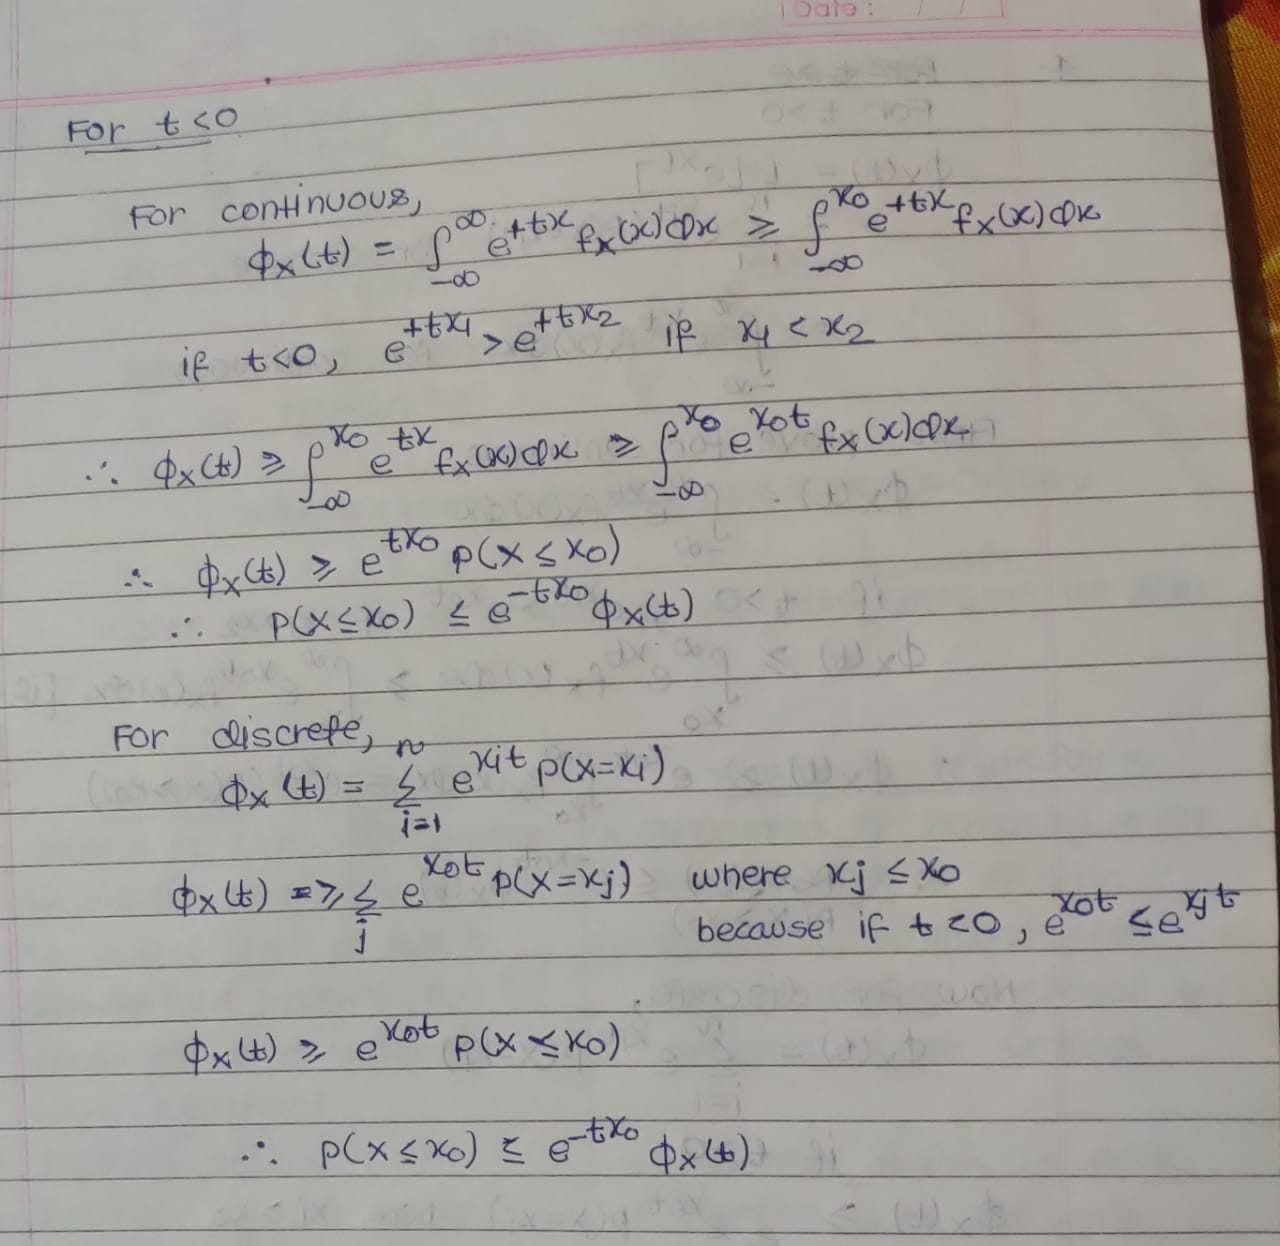 Date : / /
For t<0
For continuous,
ϕₓ(t) = ∫_{-∞}^{∞} e^{+tx} fₓ(x)dx ≥ ∫_{-∞}^{x₀} e^{+tx} fₓ(x)dx
if t<0, e^{+tx₁} > e^{+tx₂} if x₁ < x₂
∴ ϕₓ(t) ≥ ∫_{-∞}^{x₀} e^{tx} fₓ(x)dx ≥ ∫_{-∞}^{x₀} e^{x₀t} fₓ(x)dx
∴ ϕₓ(t) ≥ e^{tx₀} P(X ≤ x₀)
∴ P(X ≤ x₀) ≤ e^{-tx₀} ϕₓ(t)
For discrete,
ϕₓ(t) = Σ_{i=1}^{n} e^{xᵢt} P(X=xᵢ)
ϕₓ(t) ≥ Σ_{j} e^{x₀t} P(X=xⱼ) where xⱼ ≤ x₀
because if t<0, e^{x₀t} ≤ e^{xⱼt}
ϕₓ(t) ≥ e^{x₀t} P(X ≤ x₀)
∴ P(X ≤ x₀) ≤ e^{-tx₀} ϕₓ(t)